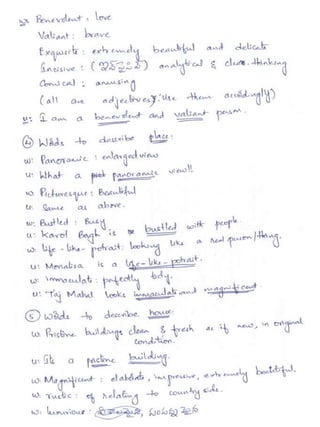 Benevolent : love
Valiant : brave
Exquisite : extremely beautiful and delicate
Incisive : ( ) analytical & clear thinking
Comical : amusing
(all are adjectives, use them accordingly)
u: I am a benevolent and valiant person.
④ Words to describe place:
w: Panoramic : enlarged view
u: What a panoramic view!!
w: Picturesque : Beautiful
u: Same as above.
w: Bustled : Busy
u: Karol Bagh is bustled with people.
w: life-like-potrait: looking like a real person/thing.
u: Monalisa is a life-like-potrait.
w: immaculate : perfectly tidy.
u: Taj Mahal looks immaculate and magnificent
⑤ Words to describe house:
w: Pristine buildings clean & fresh as if new, in original
condition.
u: Its a pristine building.
w: Magnificent : elaborate, impressive, extremely beautiful.
w: rustic : of relating to country side.
w: luxurious :